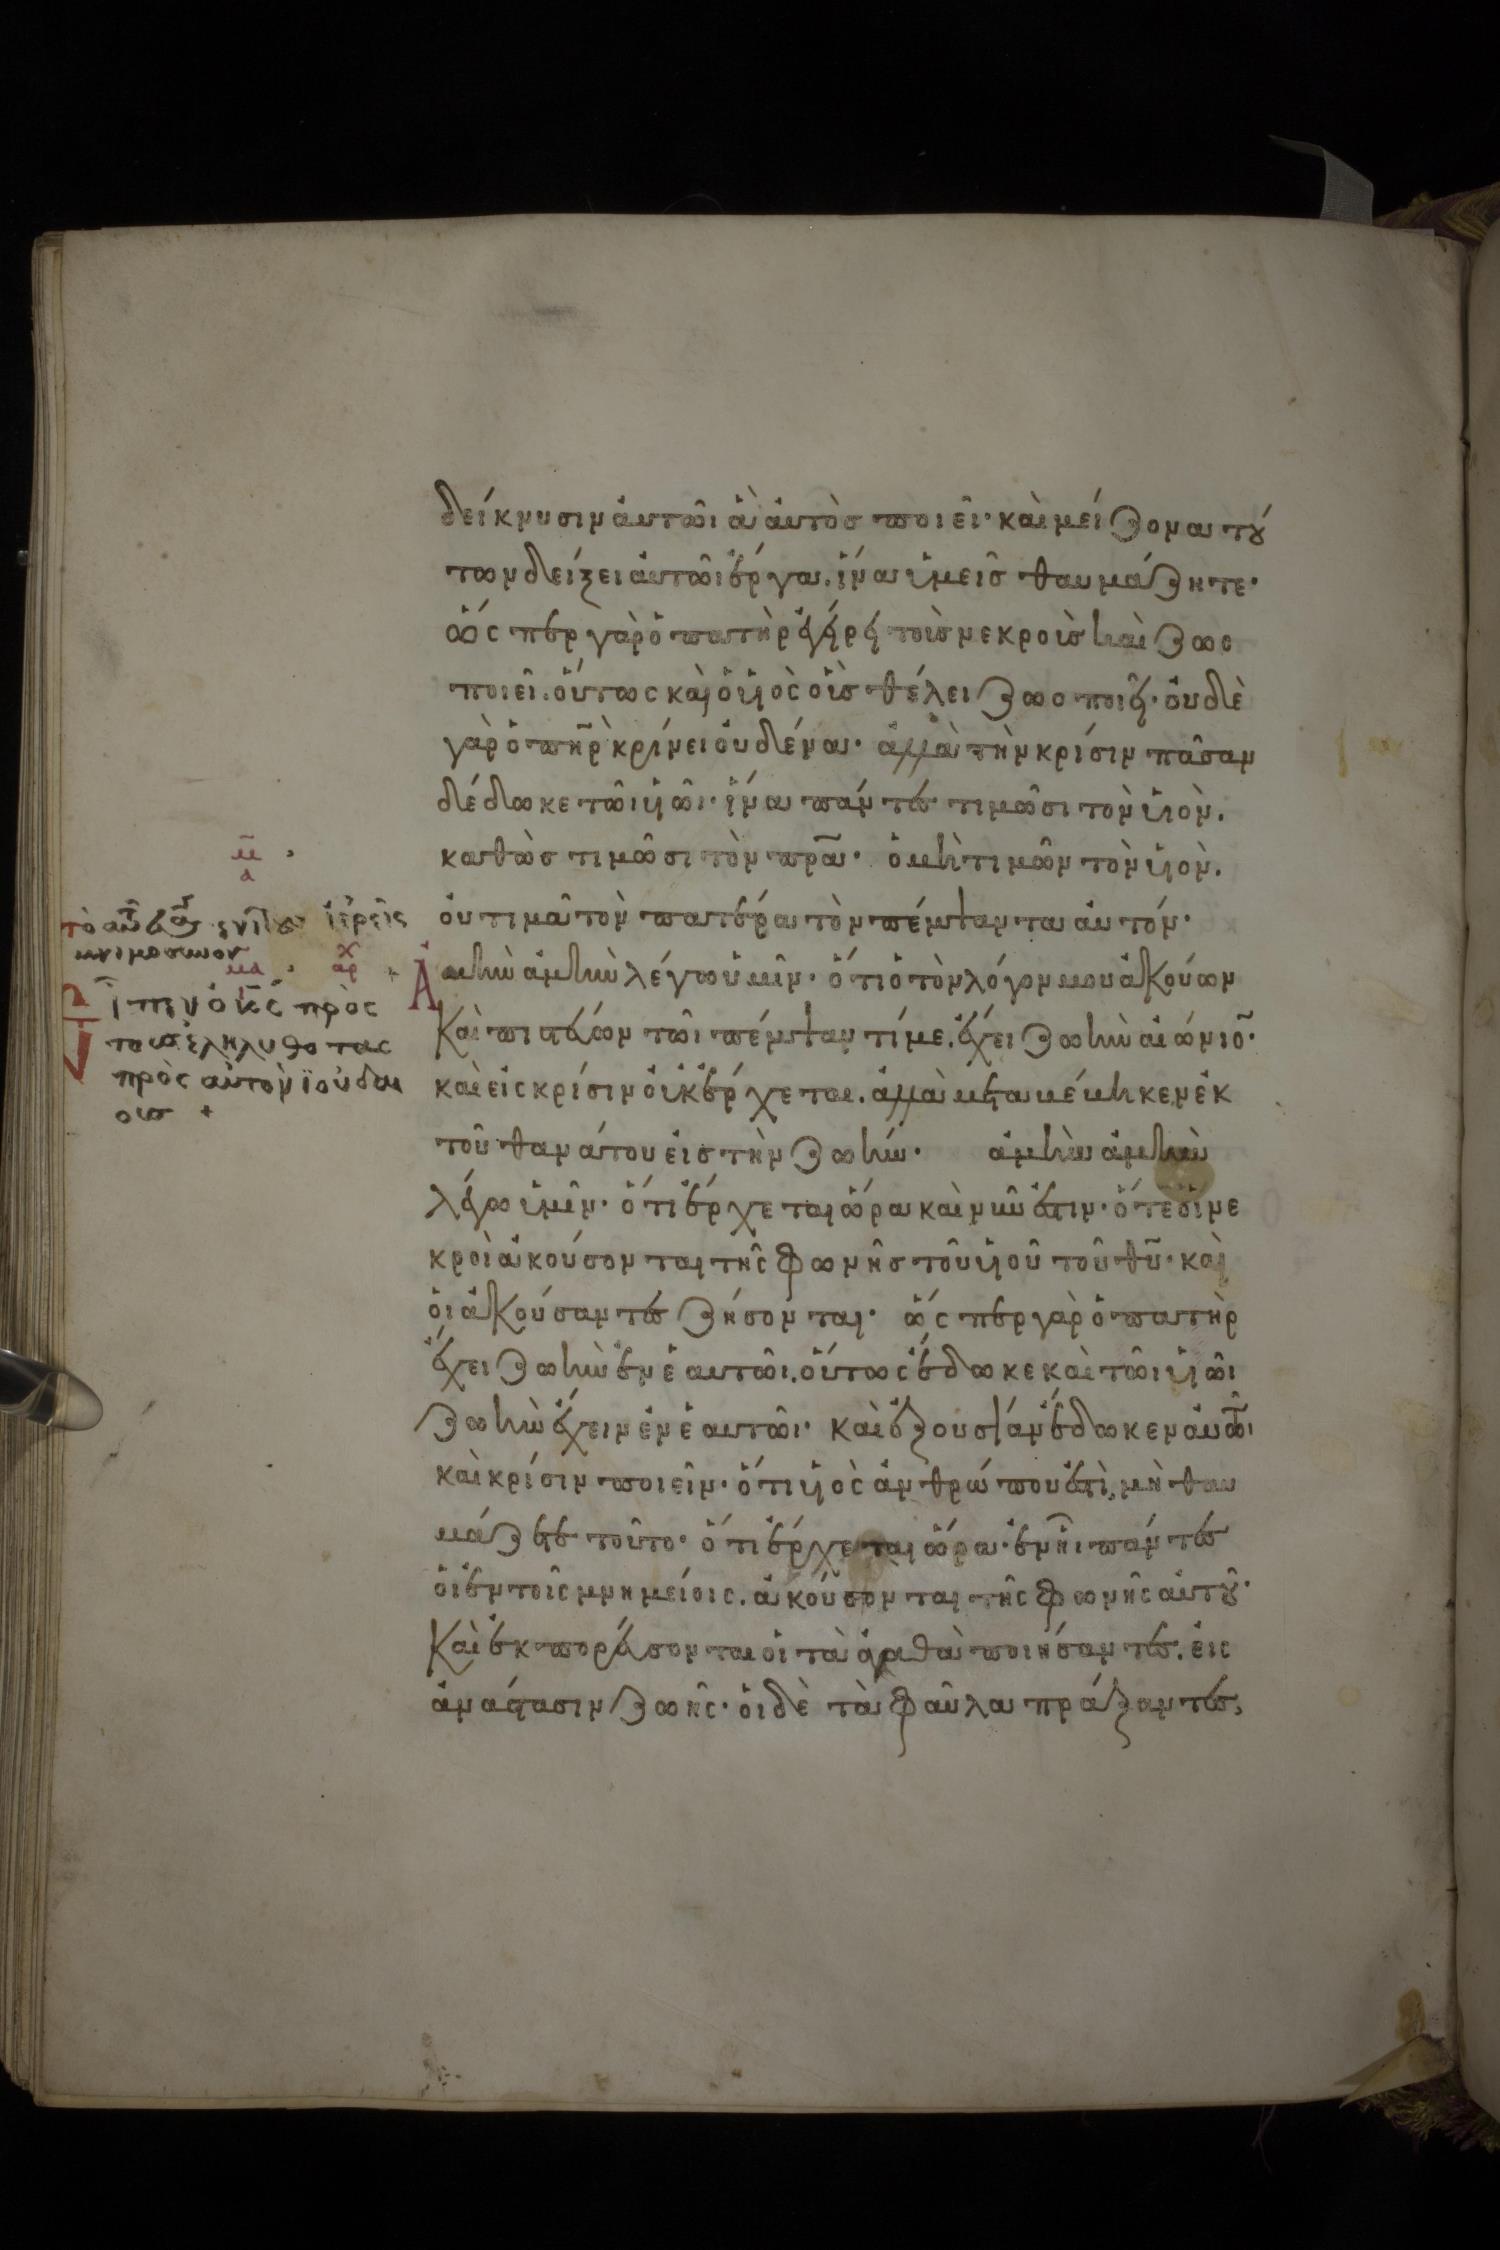 δείκνυσιν αὐτῶι ἃ αὐτὸς ποιεῖ· καὶ μείζονα τού
των δείξει αὐτῶι ἔργα. ἵνα ὑμεῖς θαυμάζητε·
ὥσπερ γὰρ ὁ πατὴρ ἐγείρει τοὺς νεκροὺς καὶ ζωο
ποιεῖ. οὕτως καὶ ὁ υἱὸς οὓς θέλει ζωοποιεῖ· οὐδὲ
γὰρ ὁ πηρ κρίνει οὐδένα· ἀλλὰ τὴν κρίσιν πᾶσαν
δέδωκε τῶι υἱῶι· ἵνα πάντες τιμῶσι τὸν υἱὸν.
καθὼς τιμῶσι τὸν πρα· ὁ μὴ τιμῶν τὸν υἱὸν.
οὐ τιμᾶ τὸν πατέρα τὸν πέμψαντα αὐτόν·
Ἀμὴν ἀμὴν λέγω ὑμῖν· ὅτι ὁ τὸν λόγον μου ἀκούων
καὶ πιστεύων τῶι πέμψαντί με. ἔχει ζωὴν αἰώνιον·
καὶ εἰς κρίσιν οὐκ ἔρχεται. ἀλλὰ μεταβέβηκεν ἐκ
τοῦ θανάτου εἰς τὴν ζωήν· ἀμὴν ἀμὴν
λέγω ὑμῖν· ὅτι ἔρχεται ὥρα καὶ νῦν ἐστιν· ὅτε οἱ νε
κροὶ ἀκούσονται τῆς φωνῆς τοῦ υἱοῦ τοῦ θυ· καὶ
οἱ ἀκούσαντες ζήσονται· ὥσπερ γὰρ ὁ πατὴρ
ἔχει ζωὴν ἐν ἑαυτῶι. οὕτως ἔδωκε καὶ τῶι υἱῶι
ζωὴν ἔχειν ἐν ἑαυτῶι· καὶ ἐξουσίαν ἔδωκεν αὐτῶι
καὶ κρίσιν ποιεῖν· ὅτι υἱὸς ἀνθρώπου ἐστὶ, μὴ θαυ
μάζετε τοῦτο· ὅτι ἔρχεται ὥρα· ἐν ἧι πάντες
οἱ ἐν τοῖς μνημείοις. ἀκούσονται τῆς φωνῆς αὐτοῦ·
καὶ ἐκπορεύσονται οἱ τὰ ἀγαθὰ ποιήσαντες. εἰς
ἀνάστασιν ζωῆς· οἱ δὲ τὰ φαῦλα πράξαντες,
ἱερεῖς
αρχ
εἶπεν ὁ ις πρὸς
τους ἐληλυθοτας
πρὸς αὐτὸν ϊουδαι
ους +